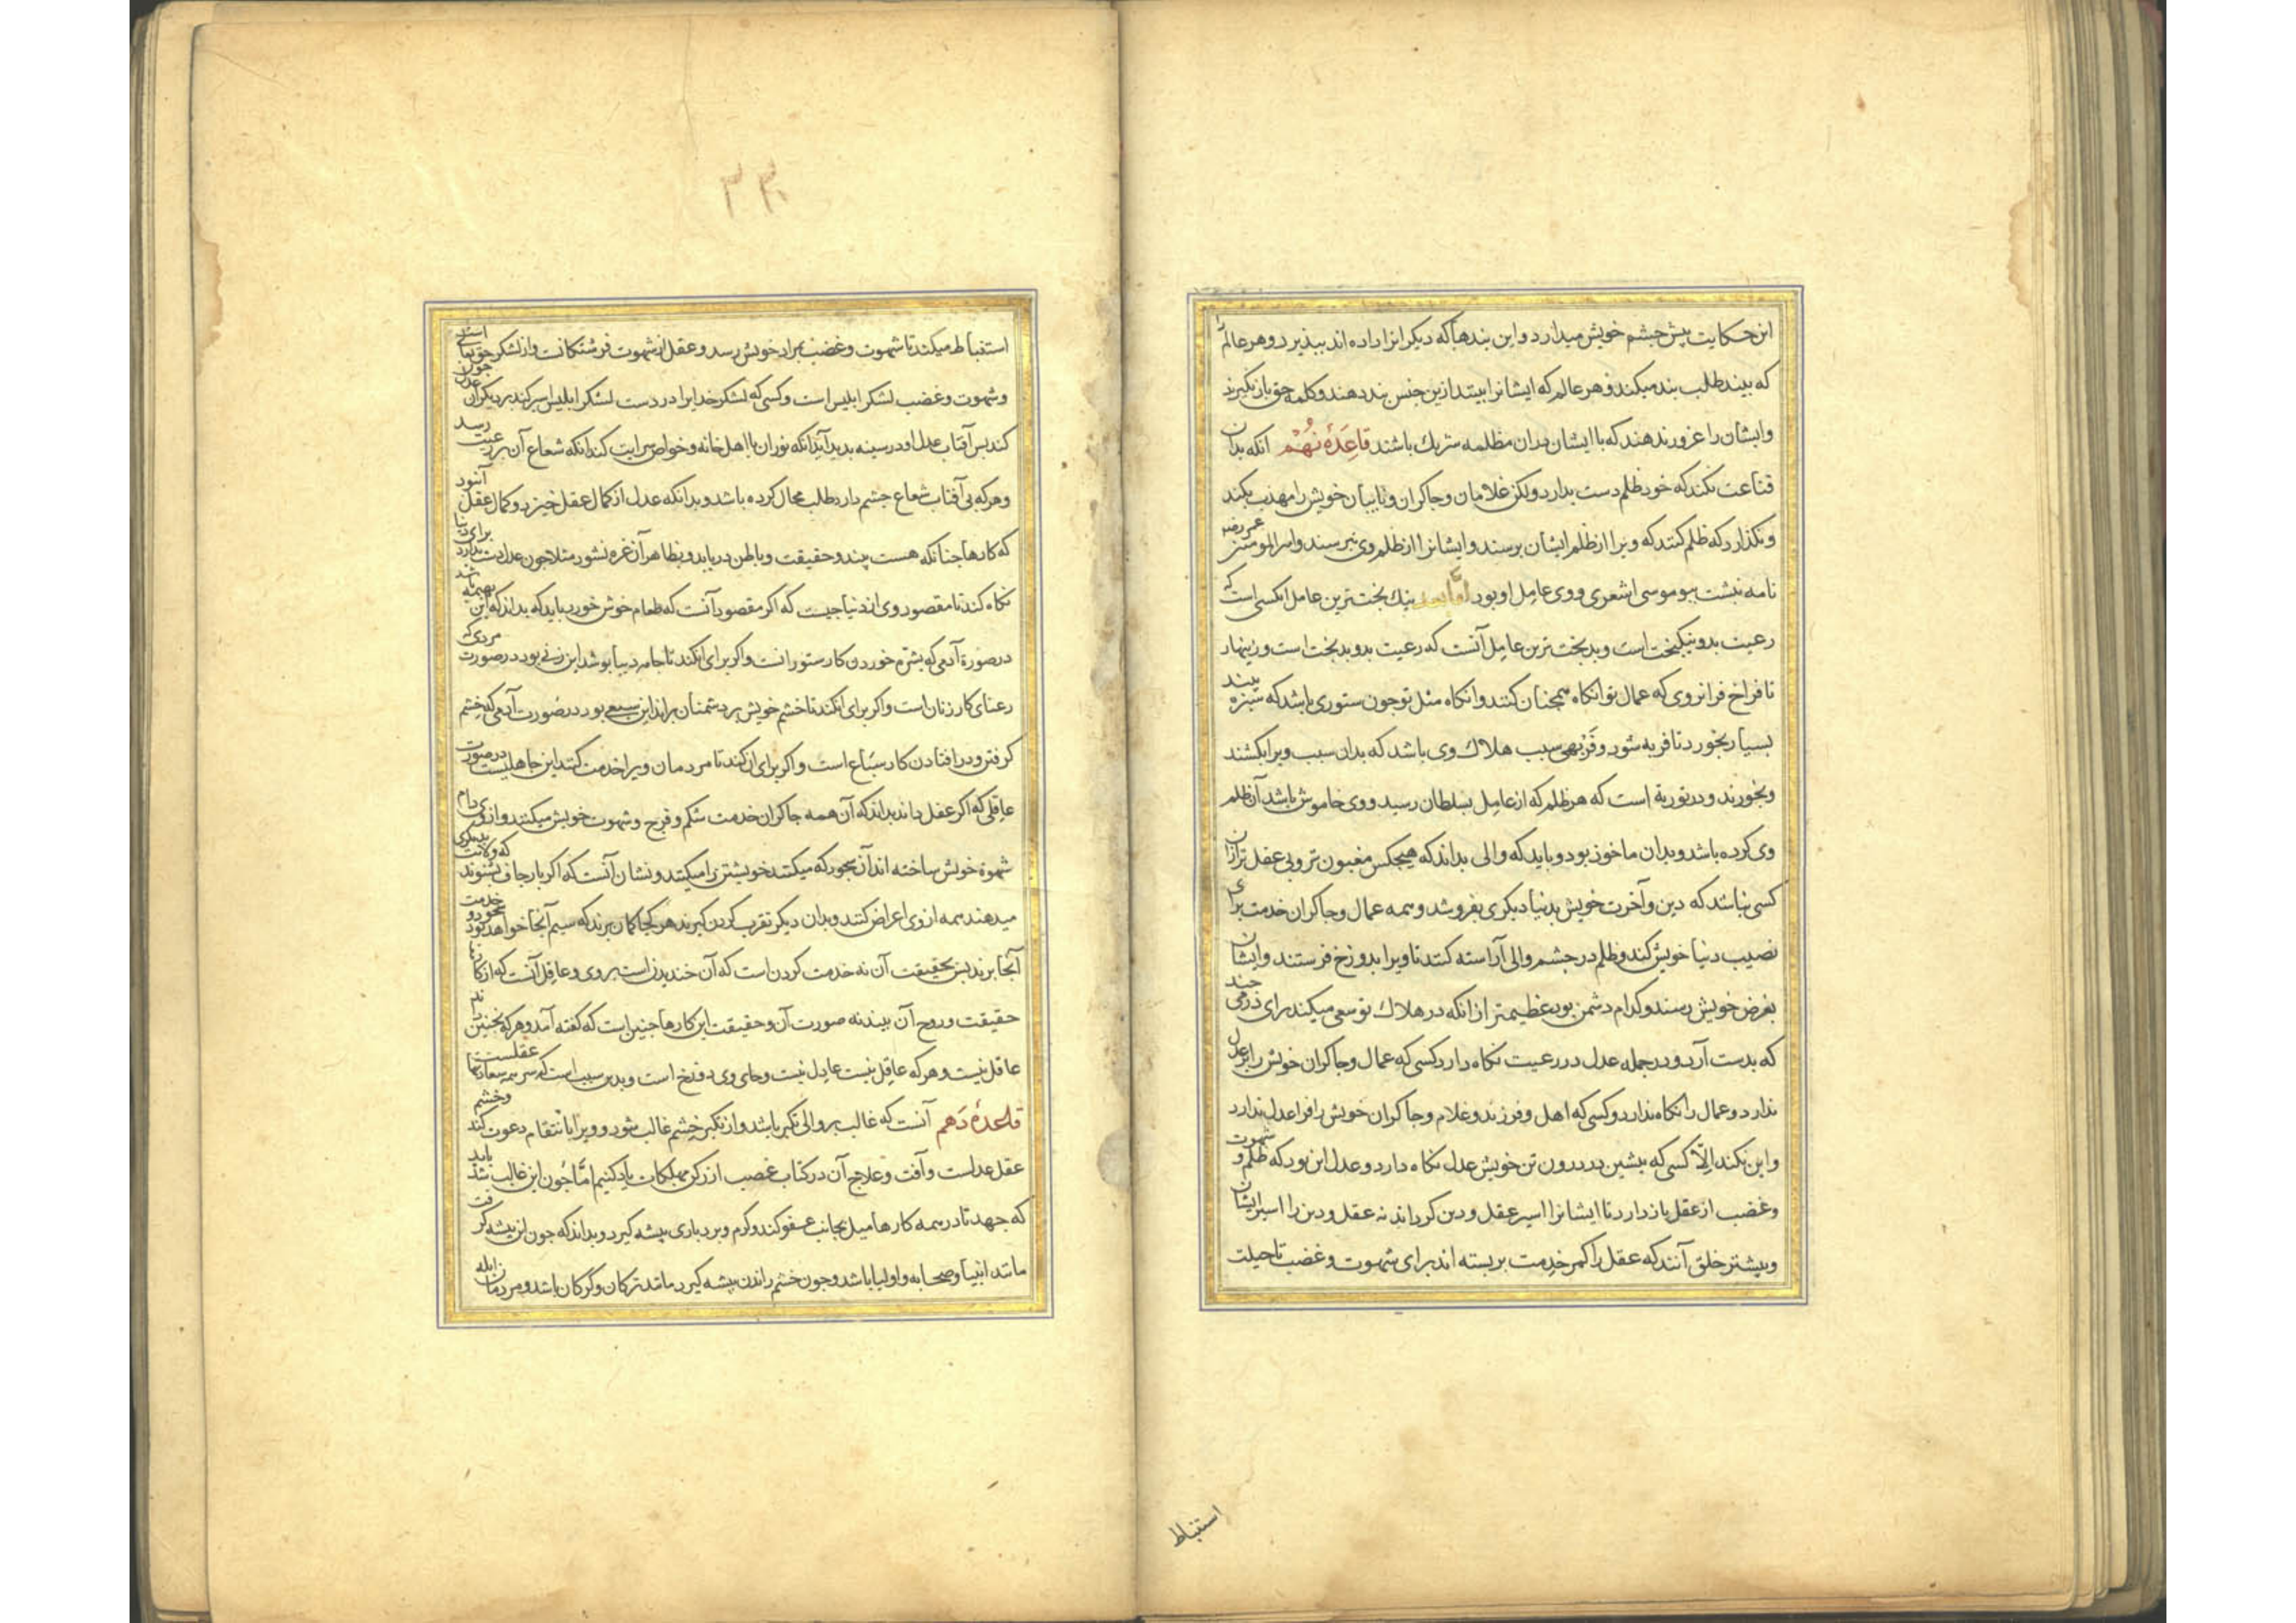 این حکایت پیش چشم خویش میدارد و این پندها که دیکرانرا داده اند بپذیرد و هر عالم را
که بیند طلب پند میکند و هر عالم که ایشانرا ببیند ازین جنس پند دهند و کلمه حق باز نکیرند
و ایشان را غرور ندهند که با ایشان بدان مظلمه شریك باشند قاعدهٔ نهم انکه بدان
قناعت نکند که خود ظلم دست بدارد ولکن غلامان و جاکران و نایبان خویش را مهذب بکند
و نکذارد که ظلم کنند که ویرا از ظلم ایشان برسند و ایشانرا از ظلم وی نپرسند و امیر المومنین عمر رضه
نامه نبشت ببو موسی اشعری و وی عامل او بود اما بعد نیك بخت ترین عامل انکسی است که
رعیت بدو نیکبخت است و بدبخت ترین عامل آنست که رعیت بدو بدبخت است و زینهار
تا فراخ فرا نروی که عمال تو انکاه همجنان کنند و انکاه مثل تو جون ستوری باشد که سبزه بیند
بسیار بخورد تا فربه شود و فربهی سبب هلاك وی باشد که بدان سبب ویرا بکشند
و بخورند و در توریة است که هر ظلم که از عامل بسلطان رسید و وی خاموش باشد آن ظلم
وی کرده باشد و بدان ماخوذ بود و باید که والی بداند که هیجکس مغبون تر و بی عقل تر ازان
کسی نباشد که دین و آخرت خویش بدنیا دیکری بفروشد و همه عمال و جاکران خدمت برای
نصیب دنیا خویش کند و ظلم در جشم والی آراسته کنند تا ویرا بدوزخ فرستند و ایشان
بغرض خویش رسند و کدام دشمن بود عظیمتر از انکه در هلاك تو سعی میکند برای درمی جند
که بدست آرد و در جمله عدل در رعیت نکاه دارد کسی که عمال و جاکران خویش را بر عدل
ندارد و عمال را نکاه ندارد و کسی که اهل و فرزند و غلام و جاکران خویش را فرا عدل ندارد
و این نکند الّا کسی که بیشین در درون تن خویش عدل نکاه دارد و عدل این بود که ظلم و شهوت
و غضب از عقل باز دارد تا ایشانرا اسیر عقل و دین کرداند نه عقل و دین را اسیر ایشان
و بیشتر خلق آنند که عقل را کمر خدمت بر بسته اند برای شهوت و غضب تا حیلت
استنباط
۳۳۰
استنباط میکند تا شهوت و غضب بمراد خویش رسد و عقل از شهوت فرشتکانست و از لشکر حق تعالی است
و شهوت و غضب لشکر ابلیس است و کسی که لشکر خدایرا در دست لشکر ابلیس اسیر کند بر دیکران عدل جون
کند بس آفتاب عدل او در سینه بدید آید آنکه نور ان با اهل خانه و خواص سرایت کند انکه شعاع آن برعیت رسد
و هر که بی آفتاب شعاع جشم دارد طلب محال کرده باشد و بدانکه عدل از کمال عقل خیزد و کمال عقل آنبود
که کارها جنانکه هست بیند و حقیقت و باطن دریابد و بظاهر آن غره نشود مثلا جون عدل دست بدارد برای دنیا
نکاه کند تا مقصود وی از دنیا جیست که اکر مقصود آنست که طعام خوش خورد باید که بداند که این بهیمهٔ باشد
در صورة آدمی که بشره خوردن کار ستورانست و اکر برای انکند تا جامه دیبا بوشد این زنی بود در صورت مردی که
رعنای کار زنان است و اکر برای انکند تا خشم خویش بر دشمنان براند این سبعی بود در صورت آدمی که خشم
کرفتن و در افتادن کار سباع است و اکر برای ان کند تا مردمان ویرا خدمت کنند این جاهلیست در صورت
عاقلی که اکر عقل داند بداند که آن همه جاکران خدمت شکم و فرج و شهوت خویش میکنند و از وی دام
شهوة خویش ساخته اند آن سجود که میکنند خویشتن را میکنند و نشان آنست که اکر بارجاف بشنوند که ولایت بدیکری
میدهند همه از وی اعراض کنند و بدان دیکر تقرب کردن کیرند هر کجا کمان برند که سیم آنجا خواهد بود خدمت و سجود
آنجا برند بس بحقیقت آن نه خدمت کردن است که آن خندیدن است بر وی و عاقل آنست که از کارها
حقیقت و روح آن بیند نه صورت آن و حقیقت این کارها جنین است که کفته آمد و هر که نجنین داند
عاقل نیست و هر که عاقل نیست عادل نیست و جای وی دوزخ است و بدین سبب است که سر همه سعادتها عقلست
قاعدهٔ دهم آنست که غالب بر والی تکبر باشد و از تکبر خشم غالب شود و ویرا با انتقام دعوت کند و خشم
عقل عداست و آفت و علاج آن در کتاب غضب از رکن مهلکات یاد کنیم امّا جون این غالب شد باید
که جهد تا در همه کارها میل بجانب عفو کند و کرم و بردباری پیشه کیرد و بداند که جون این پیشه کرفت
مانند انبیا و صحابه و اولیا باشد و جون خشم راندن پیشه کیرد مانند ترکان و کرکان باشد و مردمان ابله